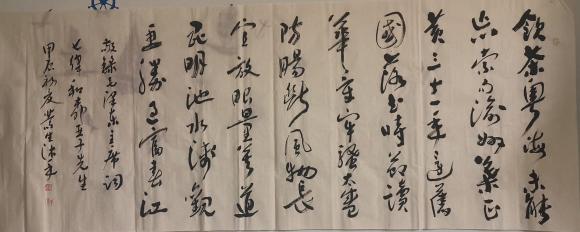 飲茶粤海未能
忘索句渝州葉正
黄三十一年還舊
國落花時節讀
華章牢騷太盛
防腸斷風物長
宜放眼量莫道
昆明池水淺觀
魚勝過富春江
敬録毛澤东主席詞
七律和柳亚子先生
甲辰初夏